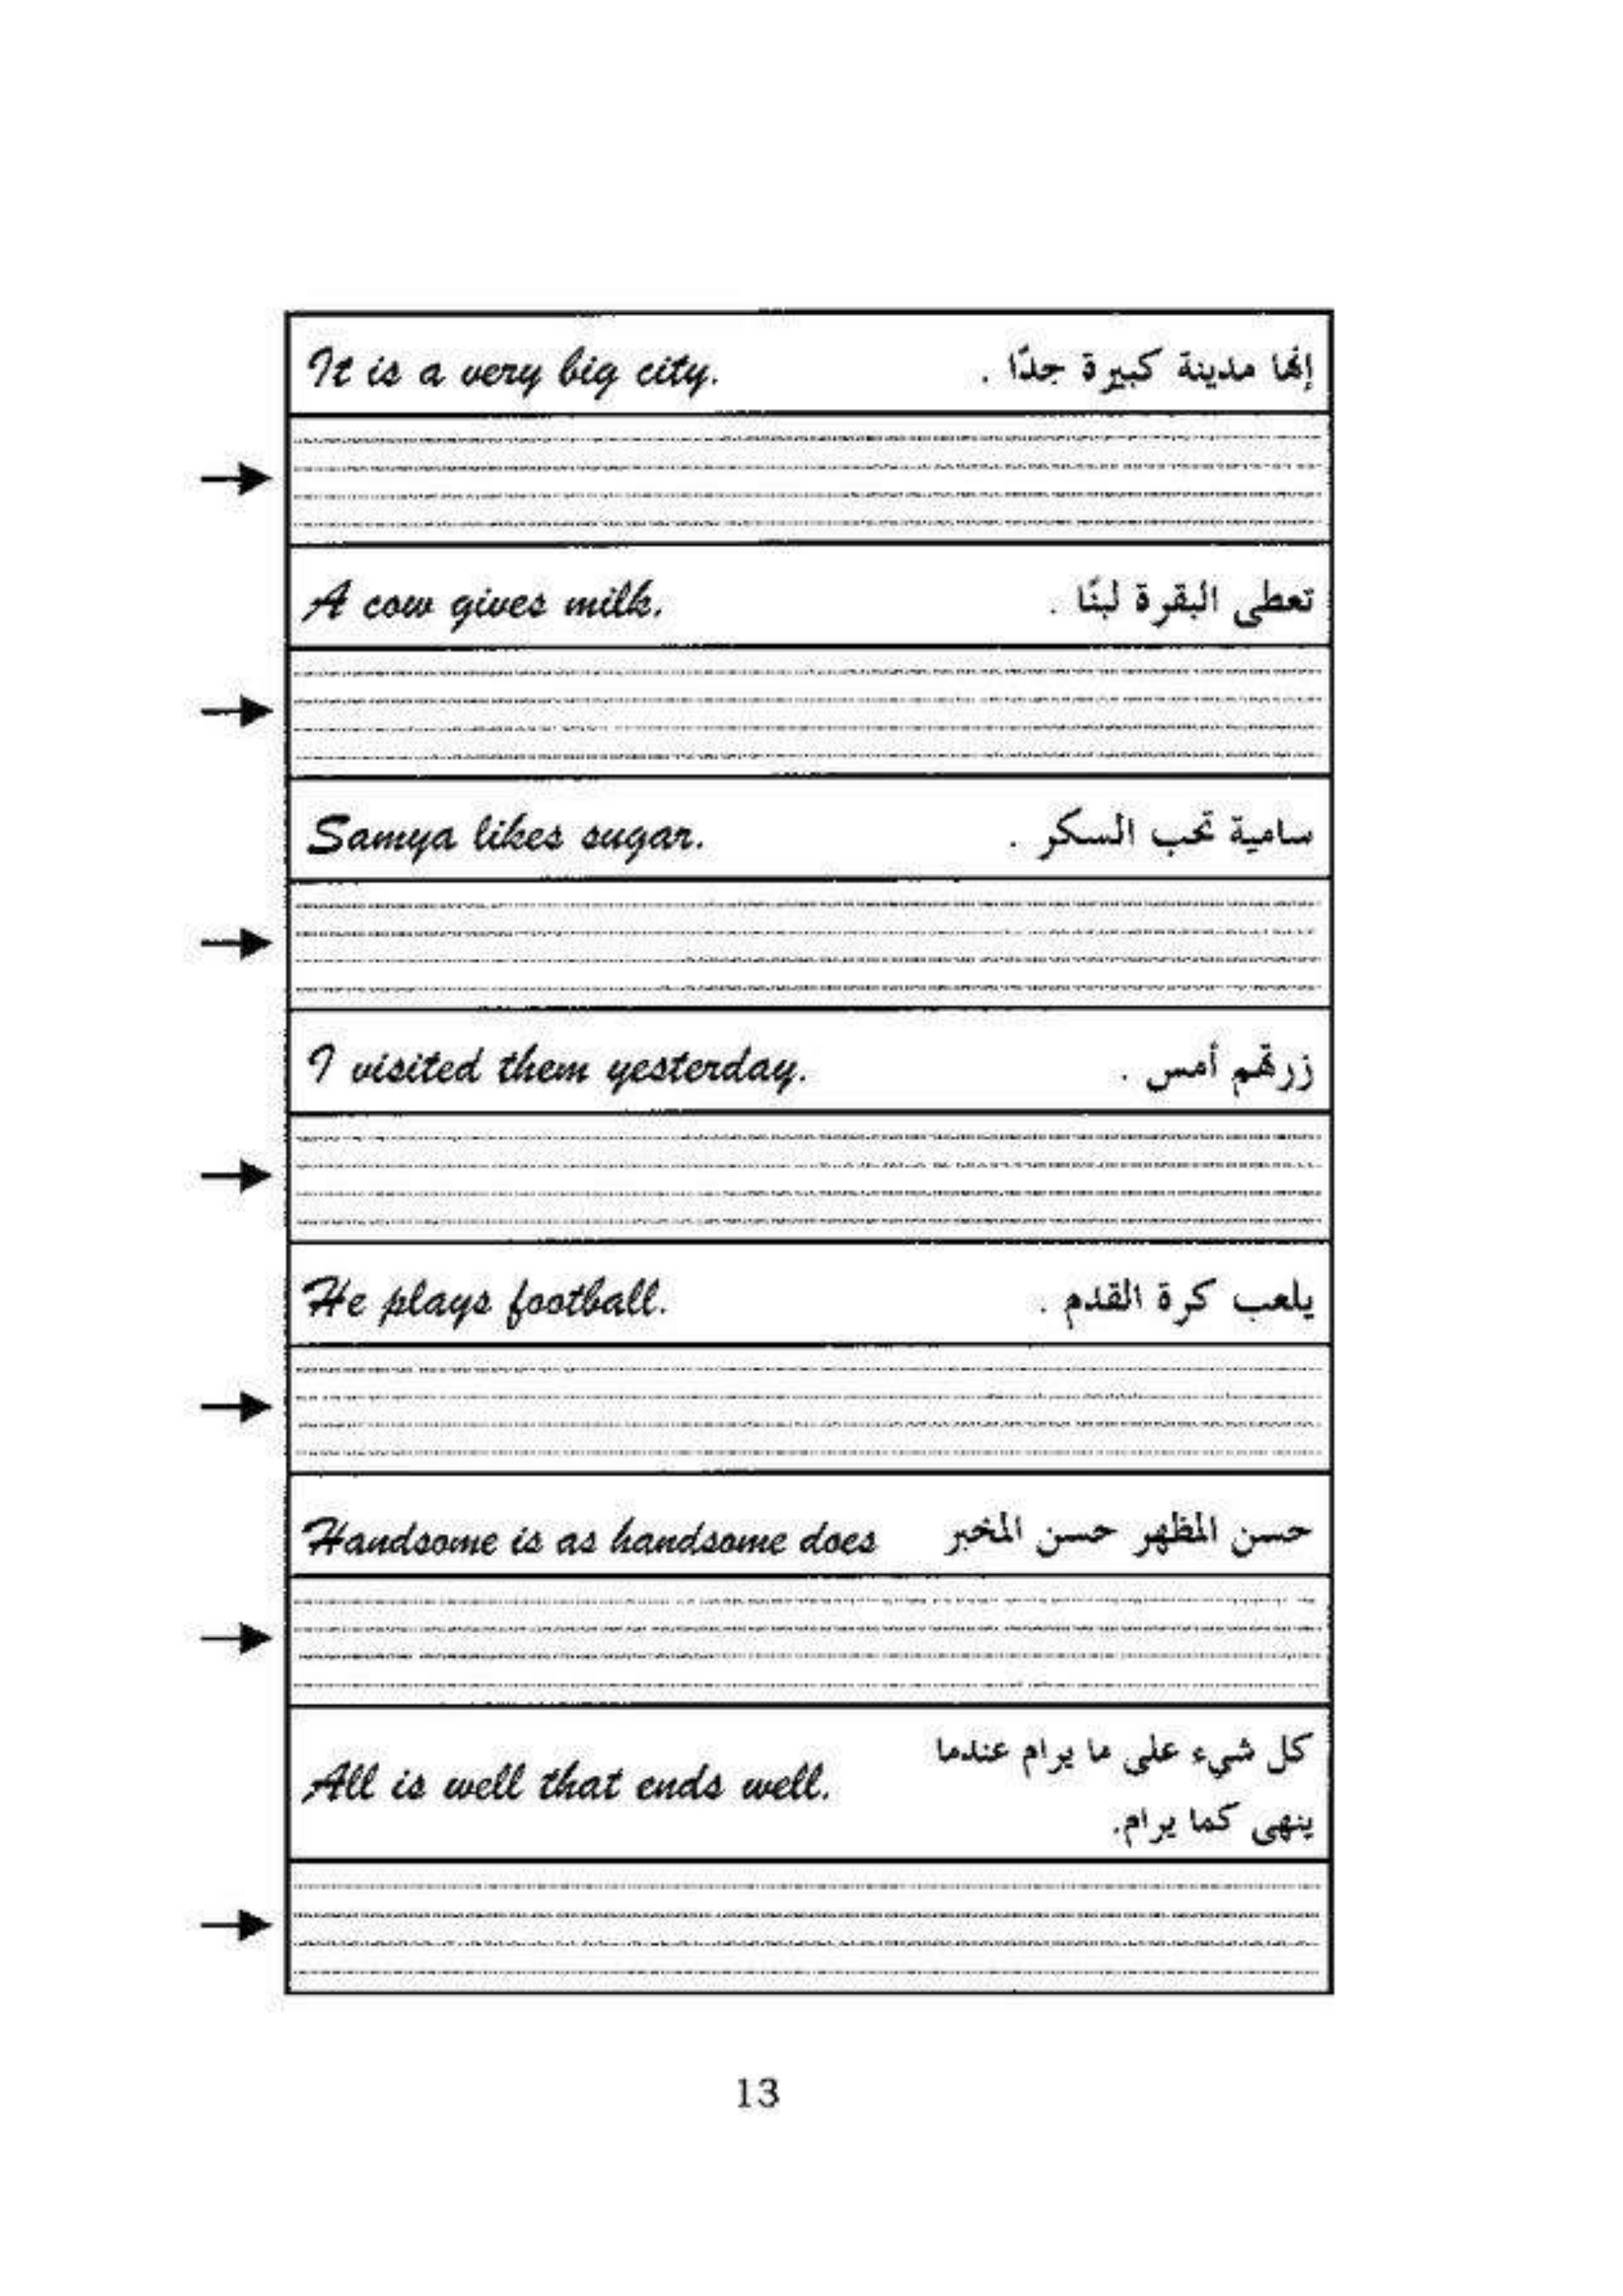 It is a very big city. إنها مدينة كبيرة جدًا .
A cow gives milk. تعطى البقرة لبنًا .
Samya likes sugar. سامية تحب السكر .
I visited them yesterday. زرتهم أمس .
He plays football. يلعب كرة القدم .
Handsome is as handsome does حسن المظهر حسن المخبر
All is well that ends well. كل شيء على ما يرام عندما
ينهى كما يرام.
13